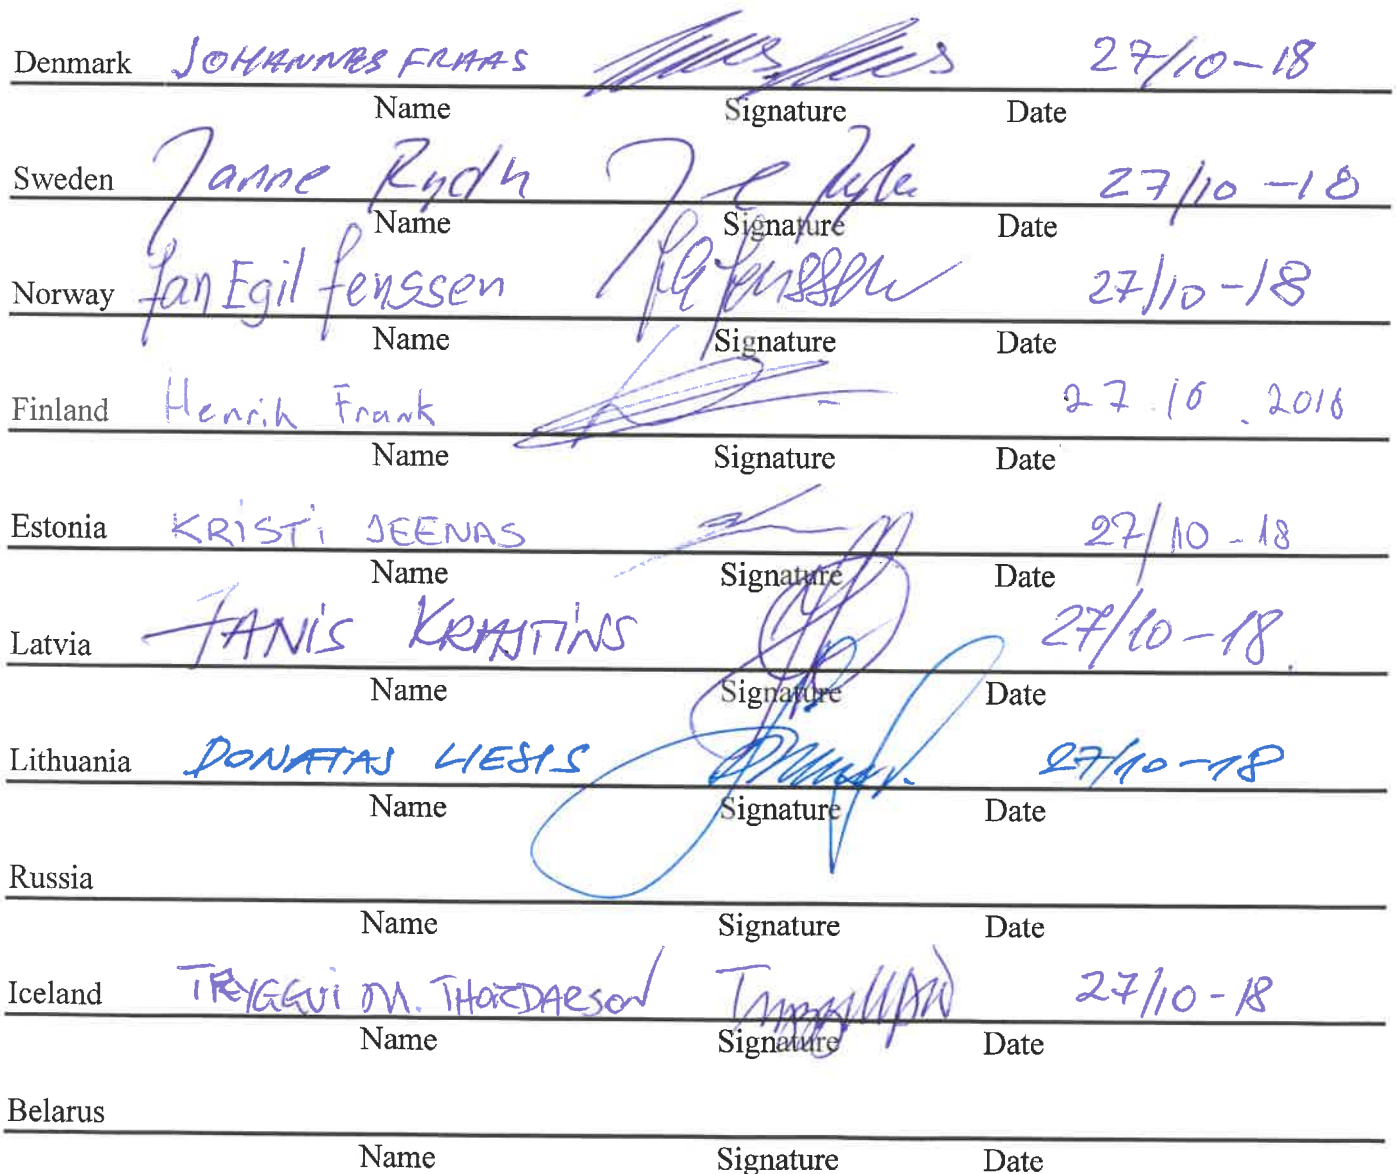 Denmark JOHANNES FRAAS 27/10-18
Name Signature Date
Sweden Janne Rydh 27/10 -18
Name Signature Date
Norway Jan Egil Jenssen 27/10-18
Name Signature Date
Finland Henrik Frank 27.10.2018
Name Signature Date
Estonia KRISTI JEENAS 27/10-18
Name Signature Date
Latvia JANIS KRASTINS 27/10-18.
Name Signature Date
Lithuania DONATAS LIESIS 27/10-18
Name Signature Date
Russia
Name Signature Date
Iceland TRYGGVI M. THORDARSON 27/10-18
Name Signature Date
Belarus
Name Signature Date